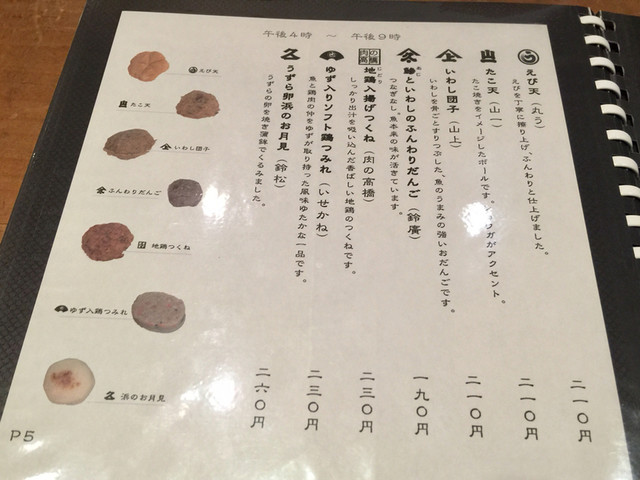 午後4時 ～ 午後9時
えび天（丸う）
えびを丁寧に摺り上げ、ふんわりと仕上げました。
二一〇円
たこ天（山一）
たこ焼きをイメージしたボールです。ショウガがアクセント。
二一〇円
いわし団子（山上）
いわしを骨ごとすりつぶした、魚のうまみの強いおだんごです。
二一〇円
鯵といわしのふんわりだんご（鈴廣）
あじ
つなぎなし。魚本来の味が活きています。
一九〇円
肉の高橋
地鶏入揚げつくね（肉の高橋）
じどり
しっかり出汁を吸い込んだ香ばしい地鶏のつくねです。
二三〇円
ゆず入りソフト鶏つみれ（いせかね）
魚と鶏肉の仲をゆずが取り持った風味ゆたかな一品です。
二三〇円
うずら卵浜のお月見（鈴松）
うずらの卵を焼き蒲鉾でくるみました。
二六〇円
えび天
たこ天
いわし団子
ふんわりだんご
地鶏つくね
ゆず入鶏つみれ
浜のお月見
P5